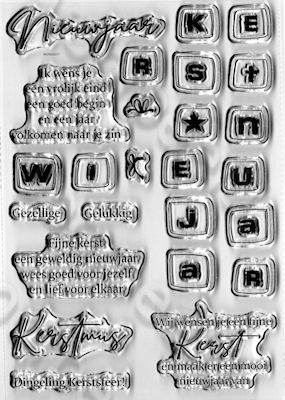 Nieuwjaar
K E
R S t
Ik wens je
een vrolijk eind
een goed begin
en een jaar
volkomen naar je zin
n
W I E U
Gezellige Gelukkig
J a
a R
Fijne kerst
een geweldig nieuwjaar
wees goed voor jezelf
en lief voor elkaar
Kerstmis
Dingeling Kerstsfeer!
Wij wensen je een fijne
Kerst
en maak er een mooi
nieuwjaar van